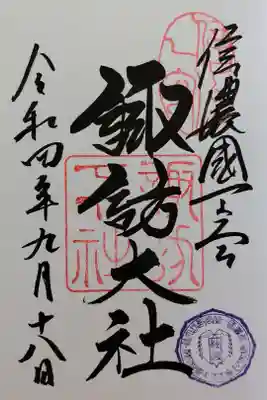 信濃國一之宮
諏訪大社
令和四年九月十八日